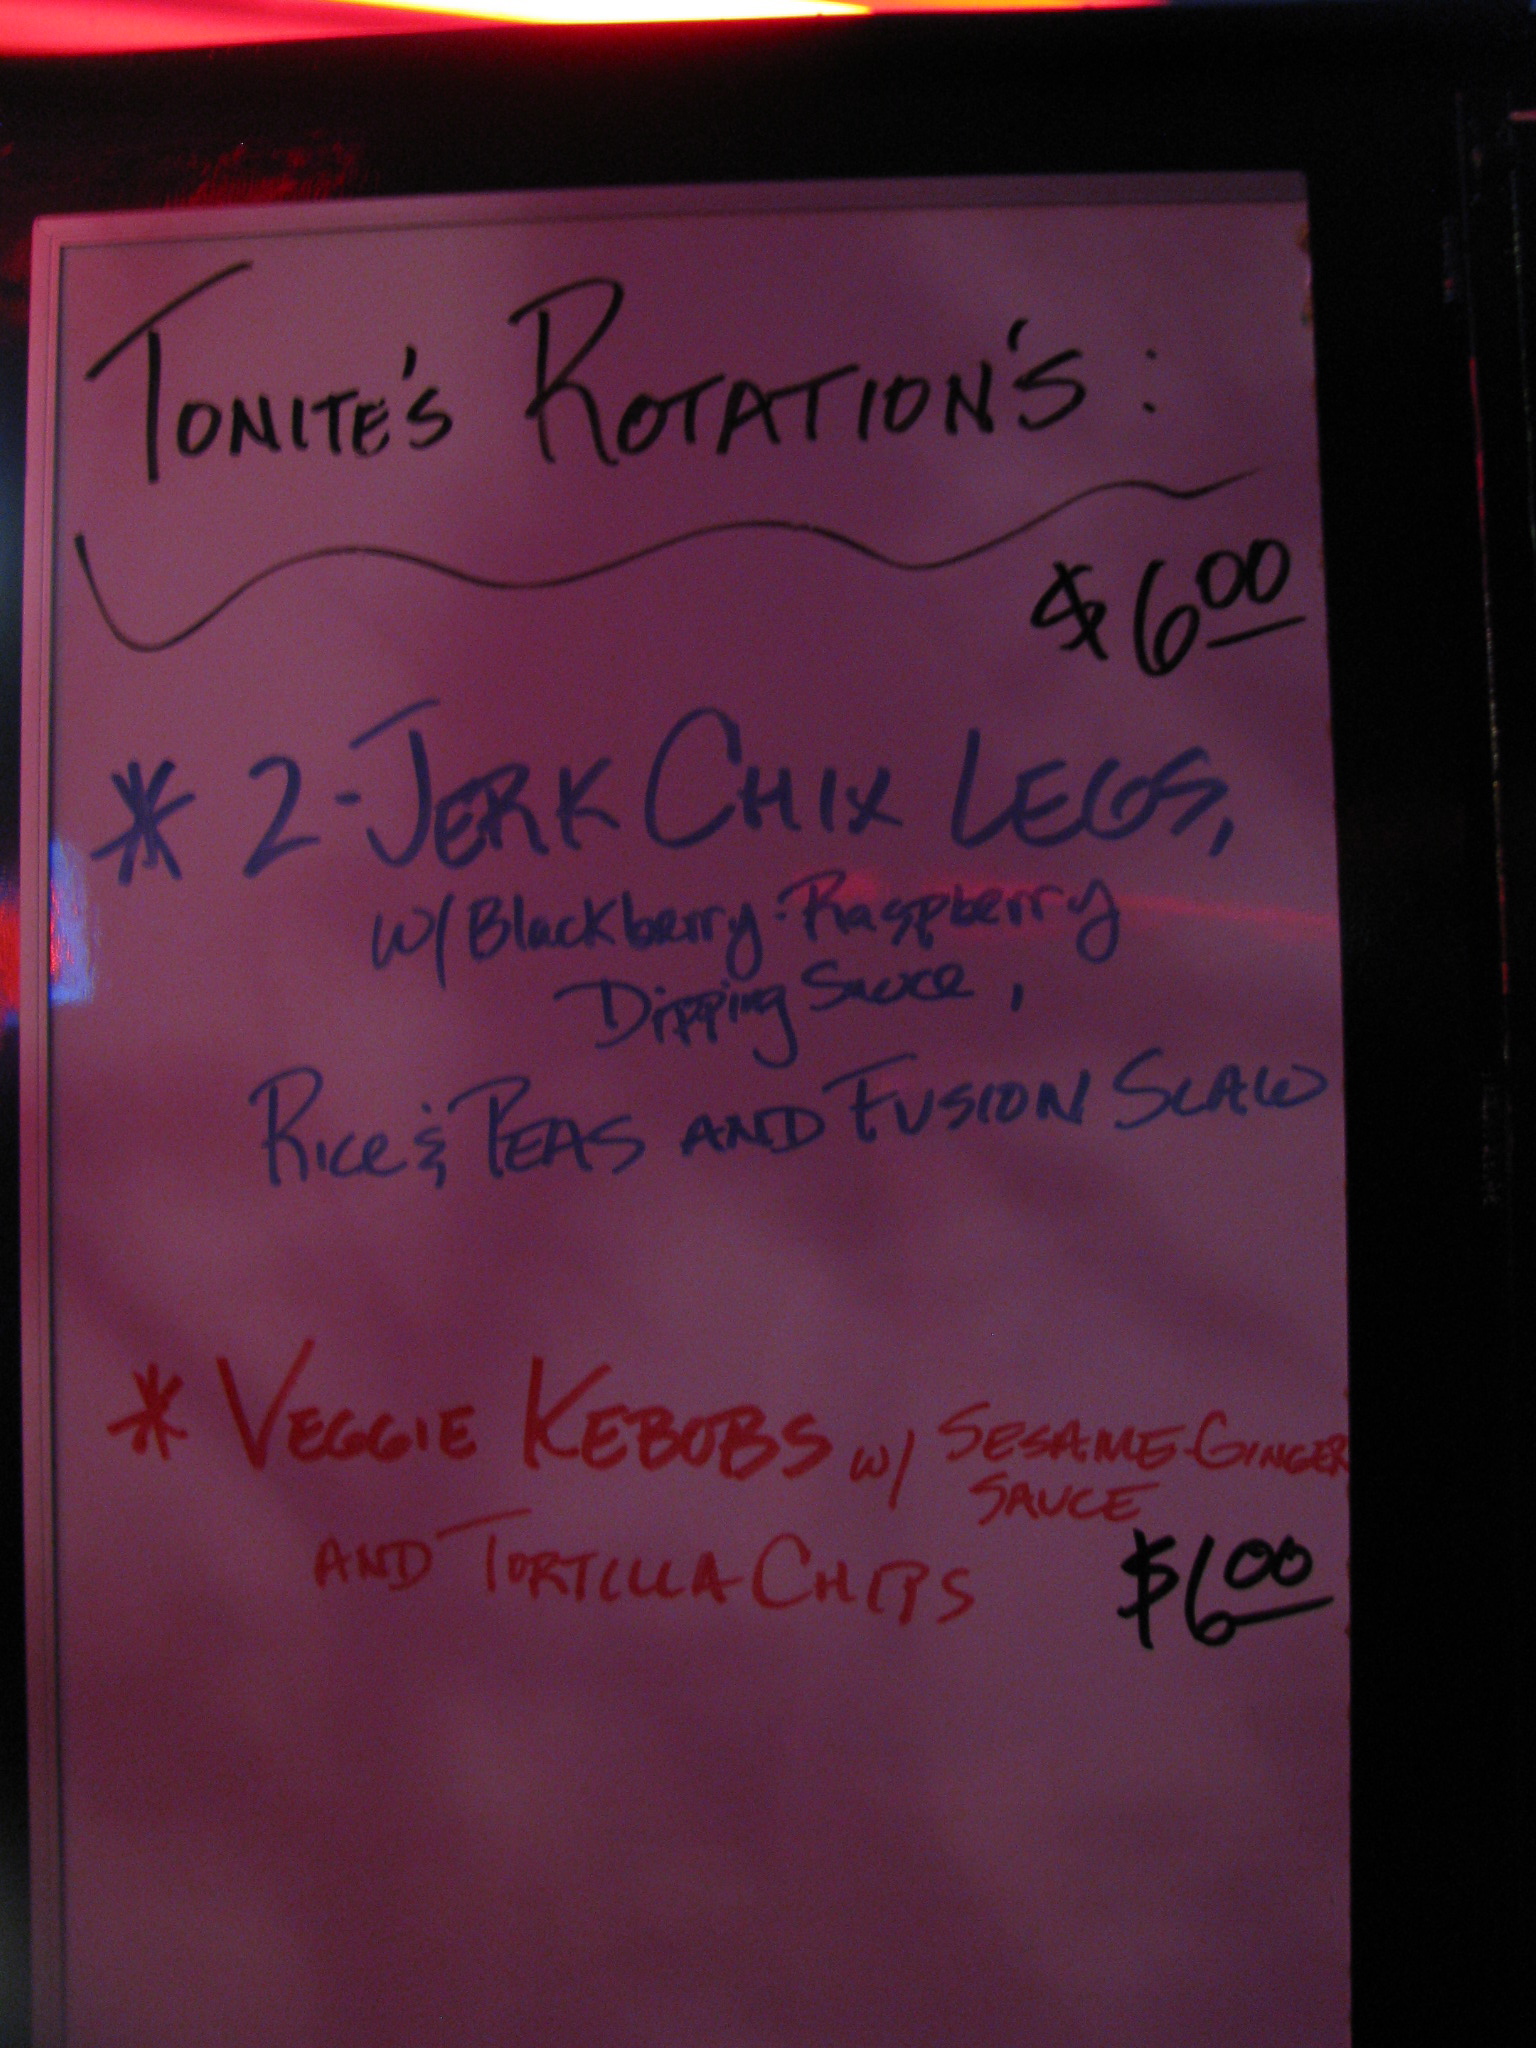 TONITE'S ROTATION'S:
$6.00
* 2-JERK CHIX LEGS,
w/ Blackberry-Raspberry
Dipping Sauce,
RICE & PEAS AND FUSION SLAW
* VEGGIE KEBOBS w/ SESAME-GINGER
SAUCE
AND TORTILLA CHIPS
$6.00